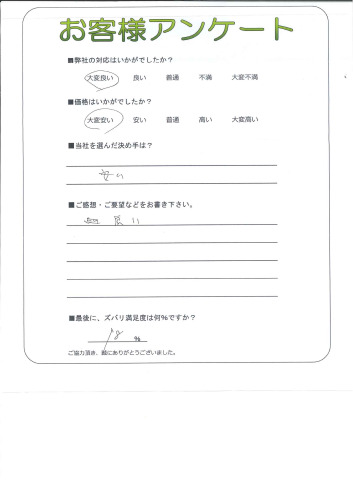 お客様アンケート
■弊社の対応はいかがでしたか？
大変良い 良い 普通 不満 大変不満
■価格はいかがでしたか？
大変安い 安い 普通 高い 大変高い
■当社を選んだ決め手は？
安い
■ご感想・ご要望などをお書き下さい。
■最後に、ズバリ満足度は何%ですか？
%
ご協力頂き、誠にありがとうございました。